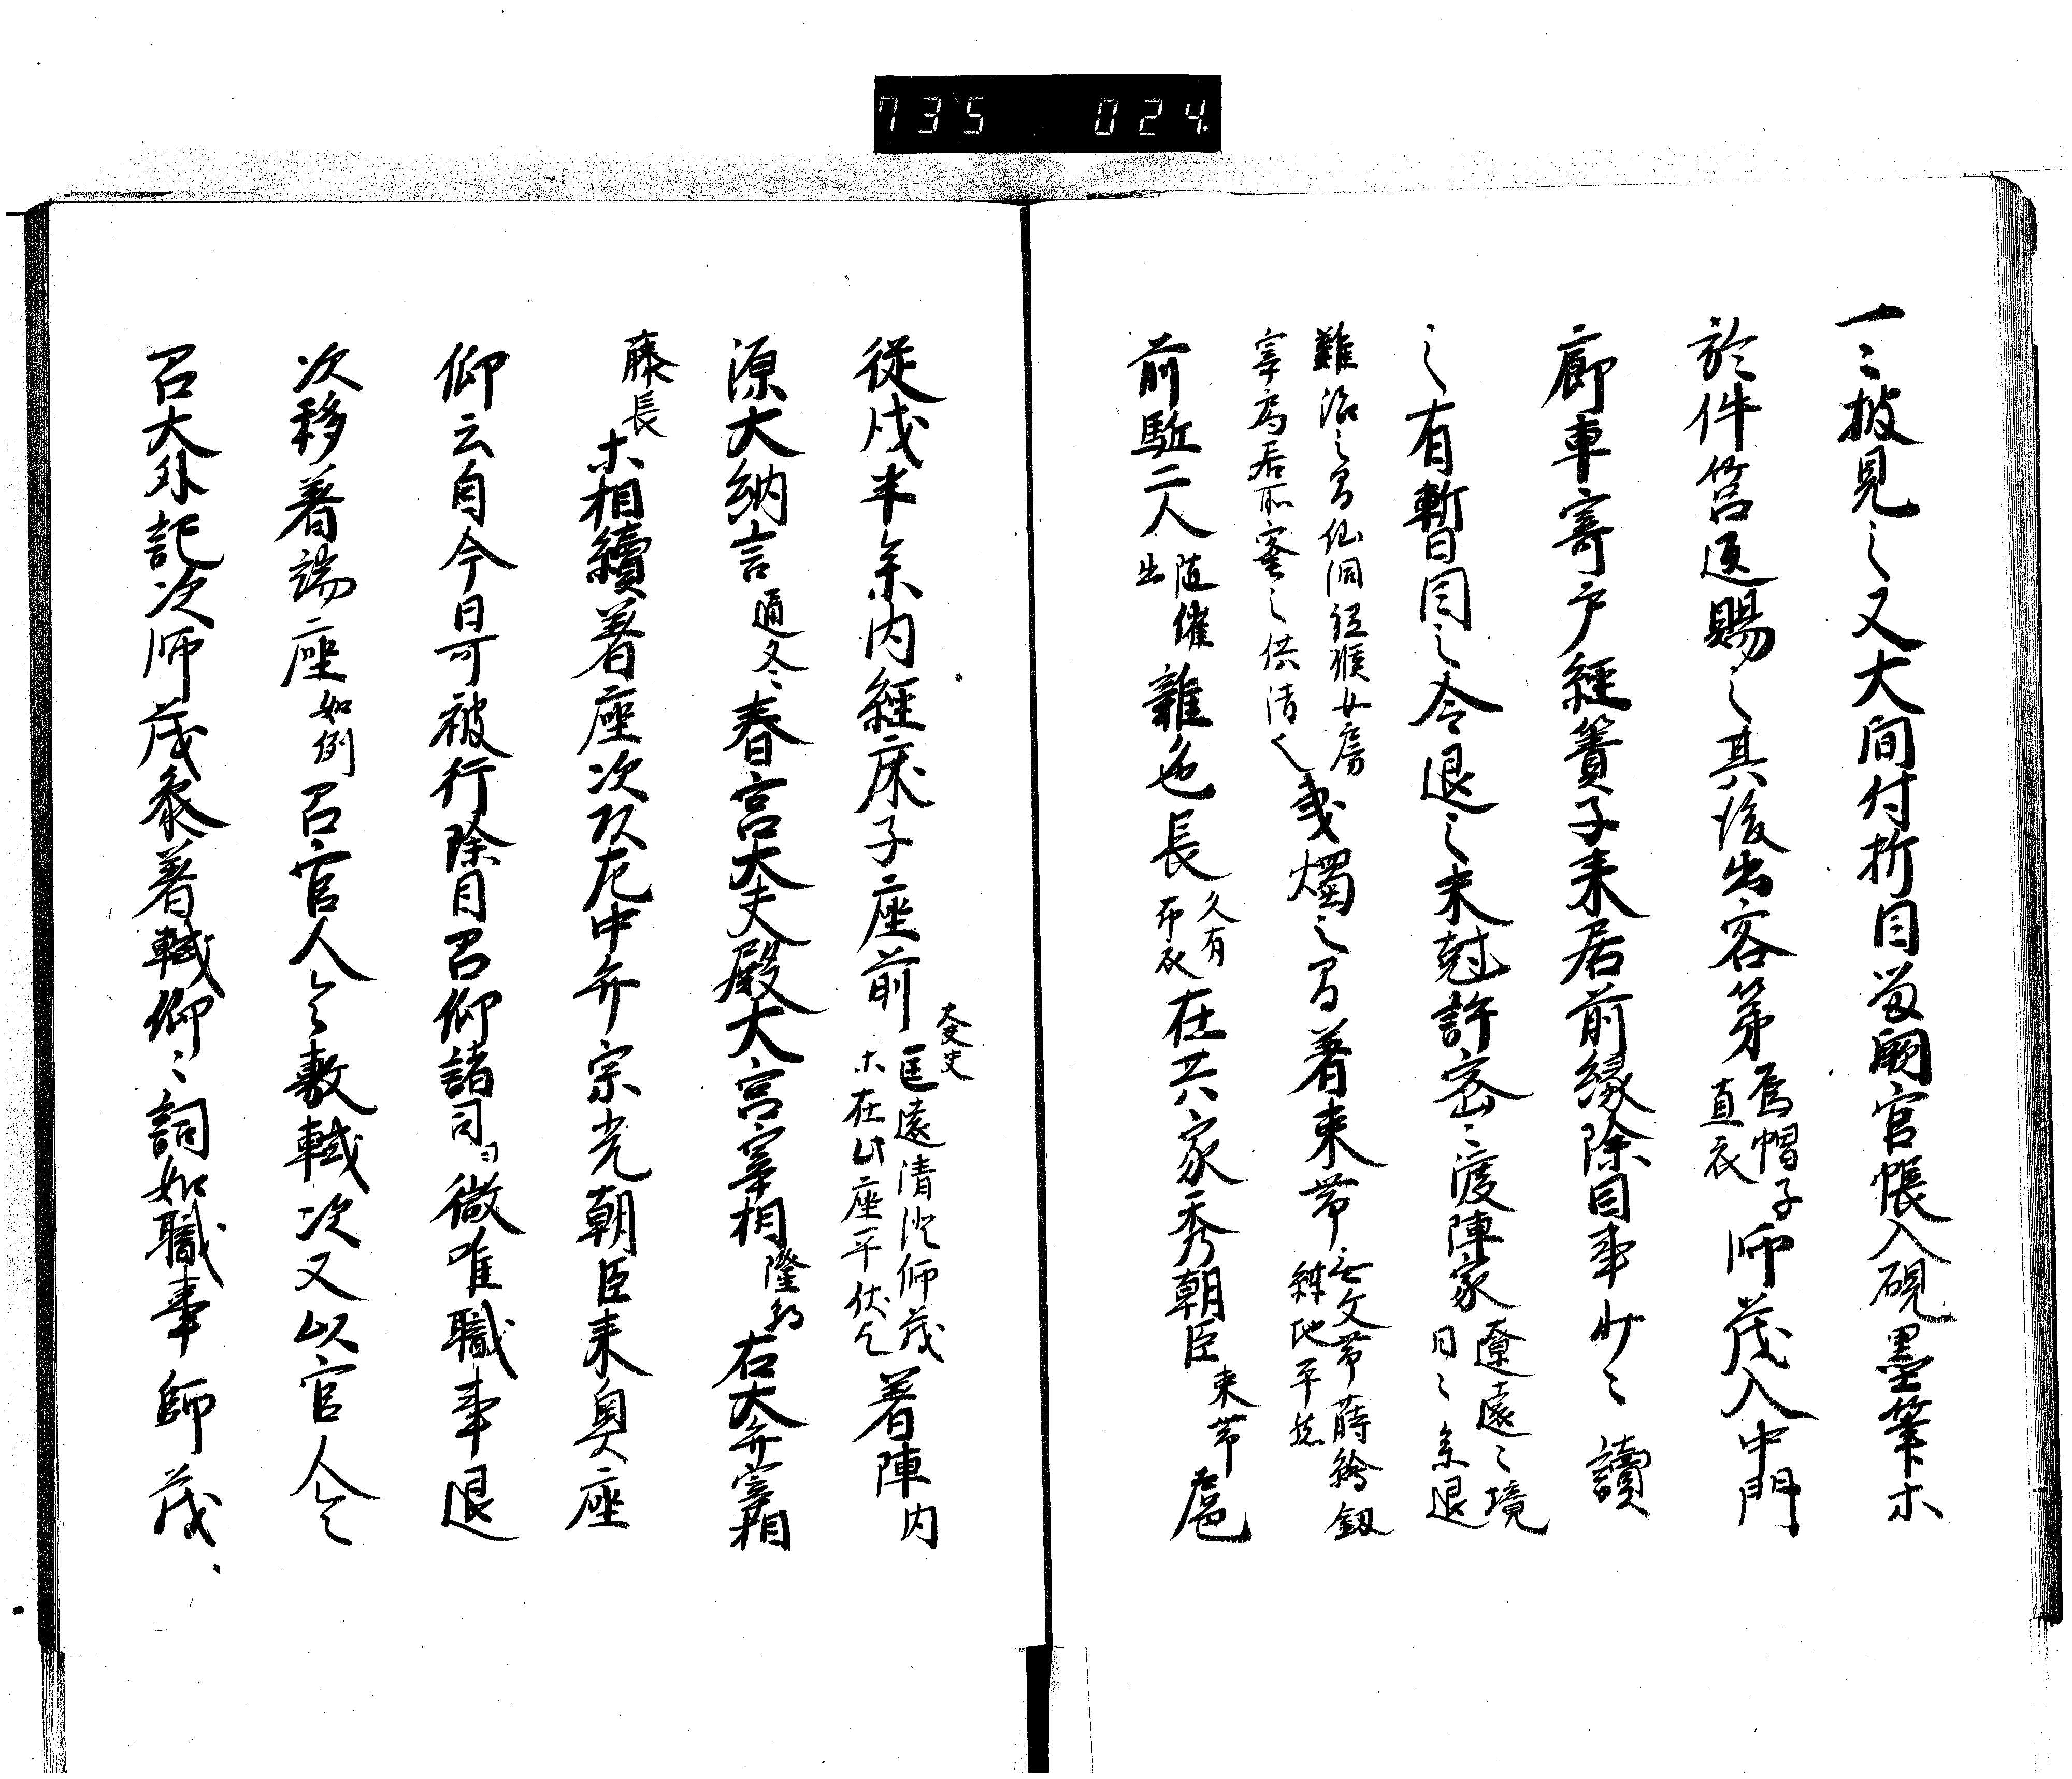 735 024
一々披見之又大間付折目欠闕官帳入硯墨筆木
於件筥返賜之其後出客第烏帽子直衣師茂入中門
廊車寄戸経簀子来居前縁除目事少々讀
之有暫目之令退之未尅許密々渡陣家遼遠之境日々参退
難治之間仙洞祗候女房
宰為居所密之借請之秉燭之間着束帯無文帯蒔絵釼絲地平緒
前駈二人随催出雑色長久有布衣在共家秀朝臣束帯扈
従戌半参内経床子座前大夫史匡遠清澄師茂木在此座平伏之著陣内
源大納言通冬春宮大夫殿大宮宰相隆持右大弁宰相
藤長木相續着座次頭左中弁宗光朝臣来奥座
仰云自今日可被行除目召仰諸司微唯職事退
次移着端座如例召官人令敷軾次又以官人令
召大外記次師茂参着軾仰々詞如職事師茂